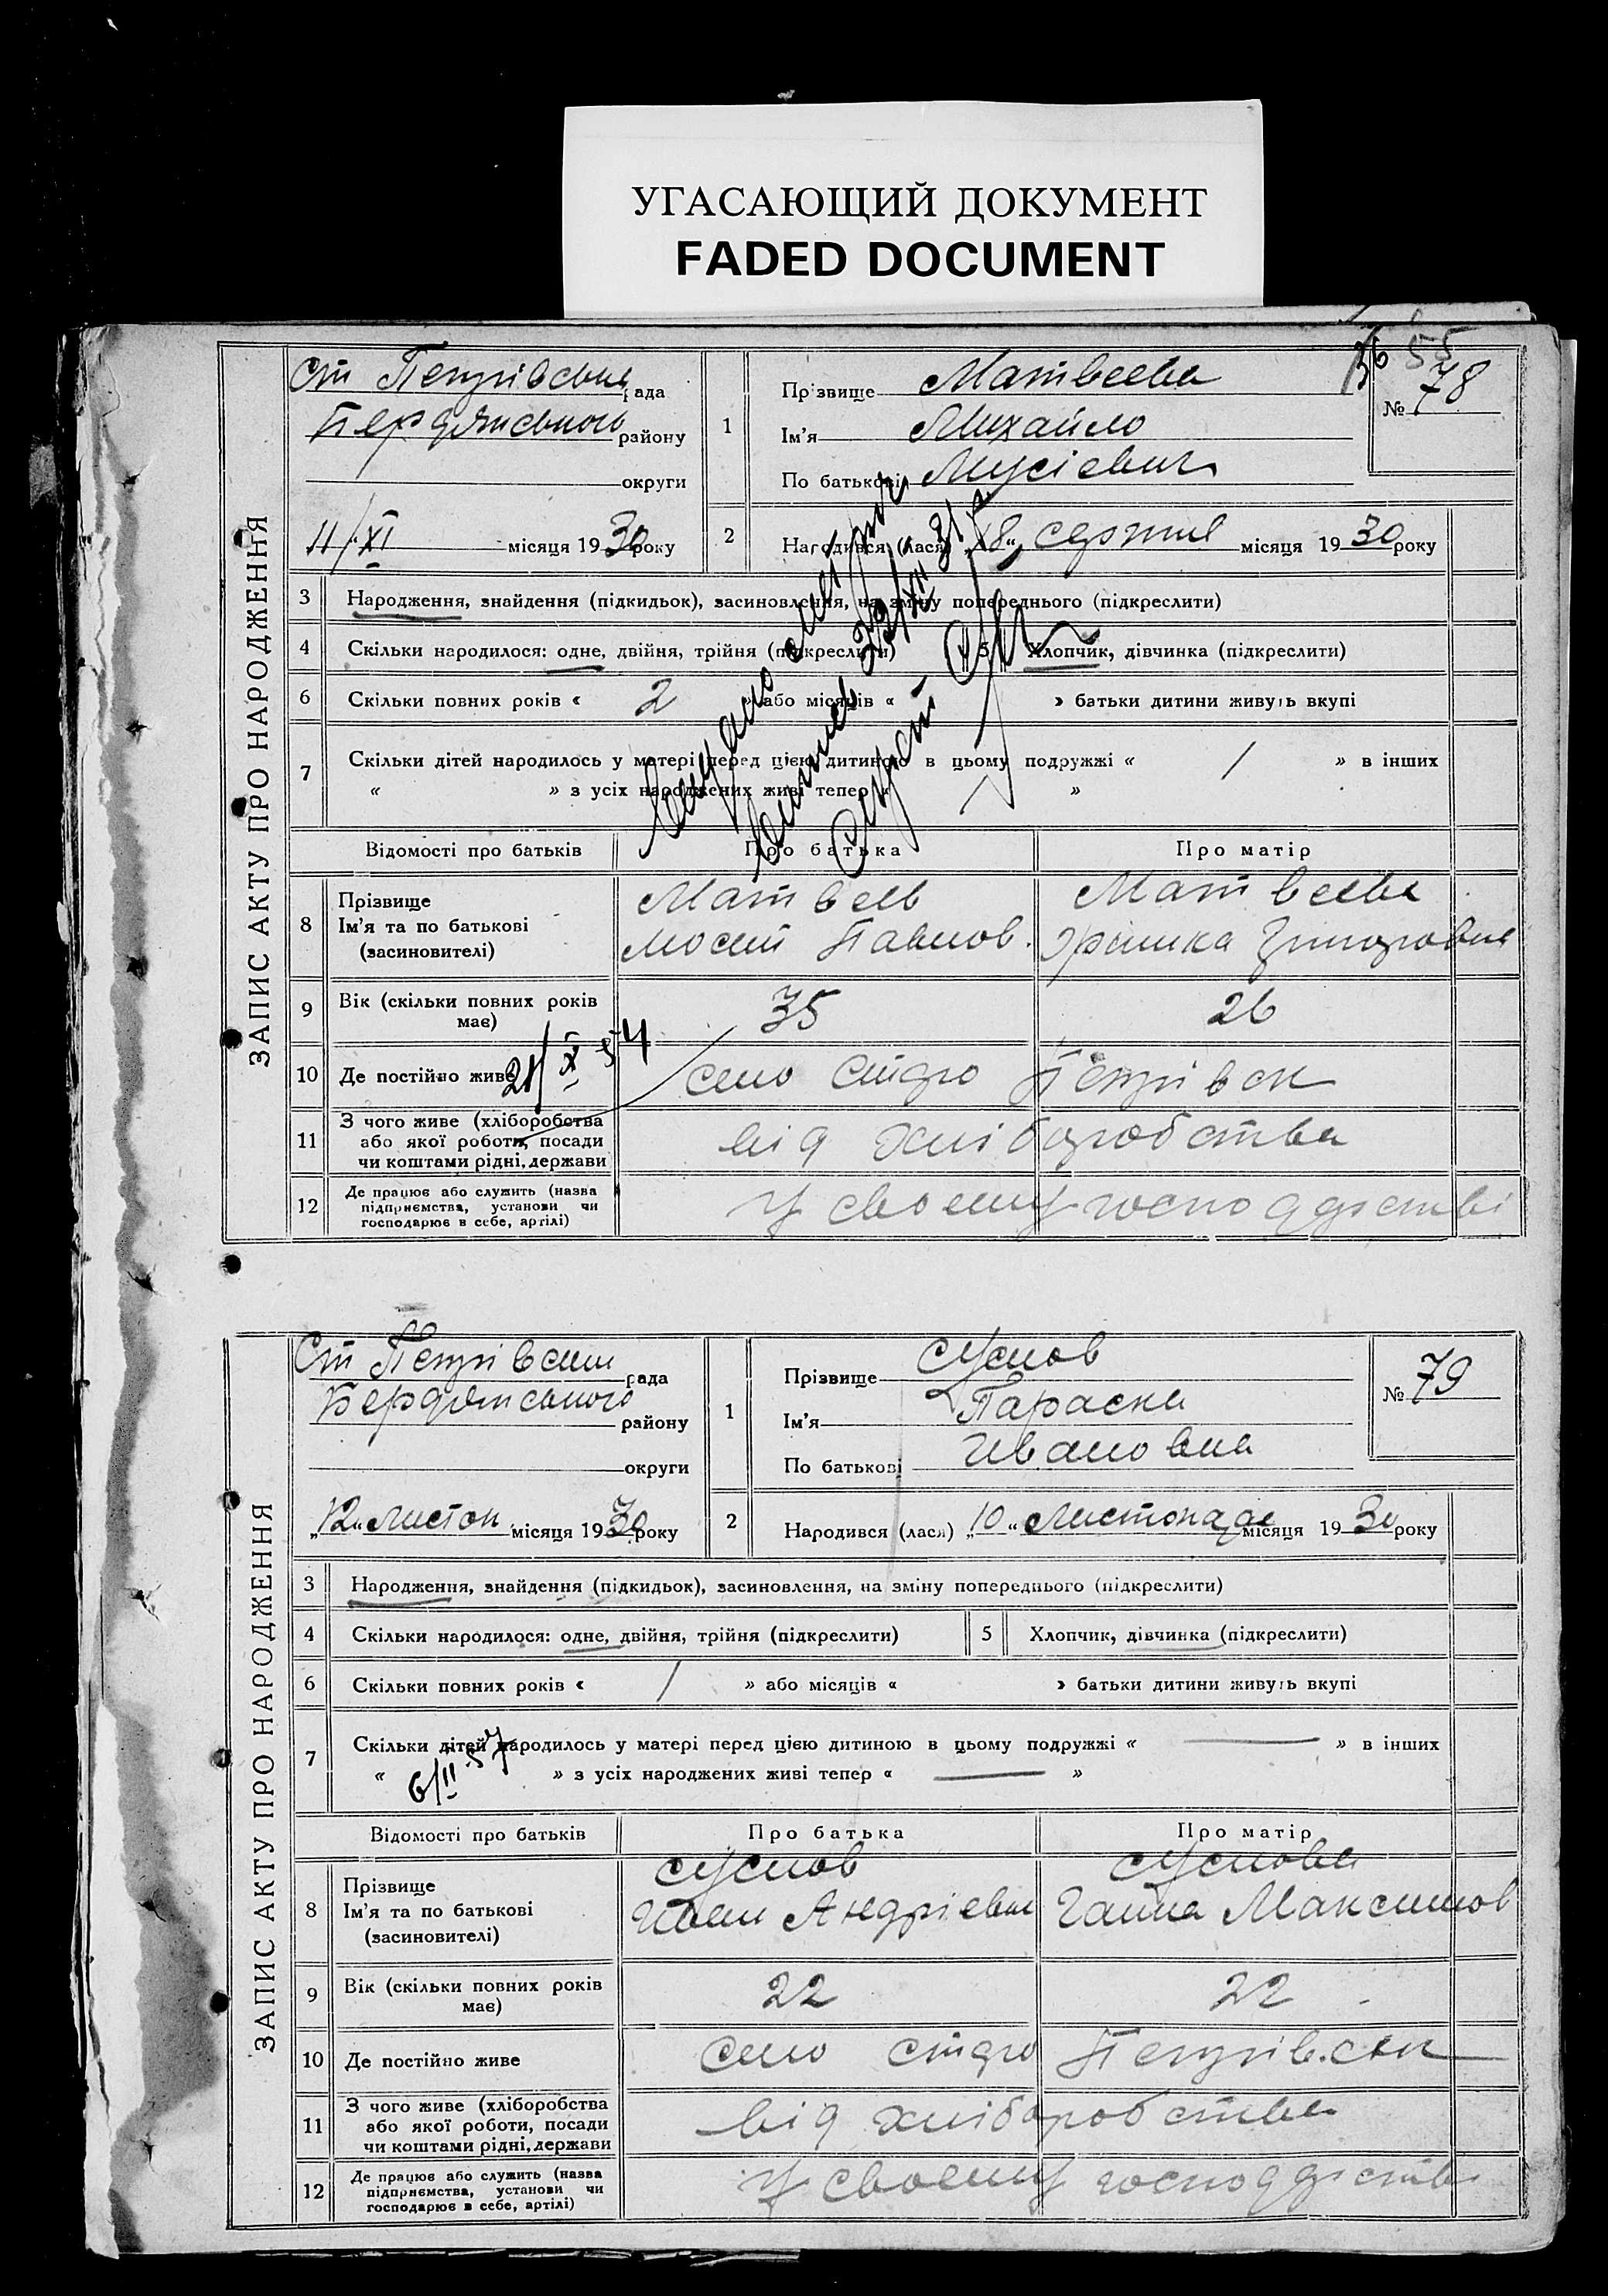 УГАСАЮЩИЙ ДОКУМЕНТ
FADED DOCUMENT
55
ЗАПИС АКТУ ПРО НАРОДЖЕННЯ
Ст Петрівська рада
Бердянського району
округи
11/XI місяця 1930 року
1
Прізвище Матвеева
Ім'я Михайло
По батькові Мусієвич
№ 78
2
Народився (лася) „18„ серпня місяця 1930 року
3 Народження, знайдення (підкидьок), засиновлення, на зміну попереднього (підкреслити)
4 Скільки народилося: одне, двійня, трійня (підкреслити) 5 Хлопчик, дівчинка (підкреслити)
6 Скільки повних років « 2 » або місяців « » батьки дитини живуть вкупі
7 Скільки дітей народилось у матері перед цією дитиною в цьому подружжі « / » в інших
« » з усіх народжених живі тепер « / »
Відомості про батьків Про батька Про матір
8 Прізвище
Ім'я та по батькові
(засновителі)
Матвеев
Мосий Павлов.
Матвеева
Григоровна
9 Вік (скільки повних років має) 35 26
21/X 54
10 Де постійно живе село Старо Петрівск
11 З чого живе (хліборобства або якої роботи, посади чи коштами рідні, держави від хліборобства
12 Де працює або служить (назва підприємства, установи чи господарює в себе, артілі) У своему господарстві
ЗАПИС АКТУ ПРО НАРОДЖЕННЯ
Ст Петрівськ рада
Бердянського району
округи
„12„ листоп місяця 1930 року
1
Прізвище
Ім'я Параска
По батькові Ивановна
№ 79
2
Народився (лася) „10„ Листопада місяця 1930 року
3 Народження, знайдення (підкидьок), засиновлення, на зміну попереднього (підкреслити)
4 Скільки народилося: одне, двійня, трійня (підкреслити) 5 Хлопчик, дівчинка (підкреслити)
6 Скільки повних років « / » або місяців « » батьки дитини живуть вкупі
7 Скільки дітей народилось у матері перед цією дитиною в цьому подружжі « — » в інших
« » з усіх народжених живі тепер « — »
6/II 57
Відомості про батьків Про батька Про матір
8 Прізвище
Ім'я та по батькові
(засиновителі)
Иван Андрієвич
Ганна Максимов
9 Вік (скільки повних років має) 22 22
10 Де постійно живе село старо Петрівск
11 З чого живе (хліборобства або якої роботи, посади чи коштами рідні, держави від хліборобства
12 Де працює або служить (назва підприємства, установи чи господарює в себе, артілі) У своему господарстві